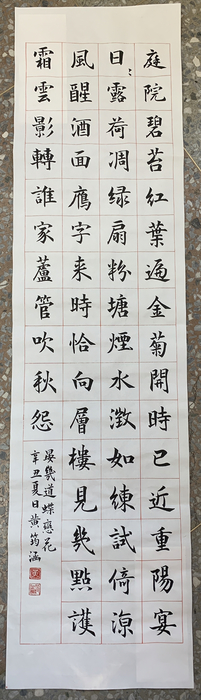 庭院碧苔紅葉遍金菊開時已近重陽宴
日〻露荷凋綠扇粉塘煙水澂如練試倚涼
風醒酒面鴈字来時恰向層樓見幾點護
霜雲影轉誰家蘆管吹秋怨
晏幾道蝶戀花
辛丑夏日黃筠涵